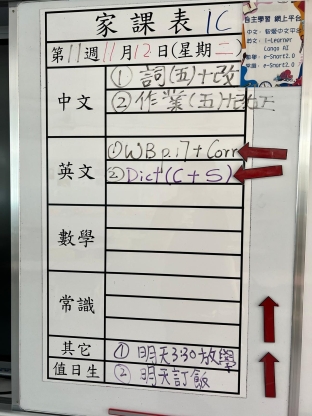 家課表 1C
第11週11月12日(星期二)
中文
① 詞(五)+改
② 作業(五)+改正
英文
① WB p.17 + Corr
② Dict (C + S)
數學
常識
其它
① 明天3:30放學
值日生
② 明天訂飯
自主學習 網上平台
i-Learner
e-Smart2.0
e-Smart2.0